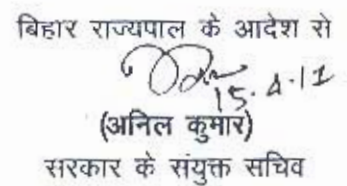 बिहार राज्यपाल के आदेश से
15.4.12
(अनिल कुमार)
सरकार के संयुक्त सचिव